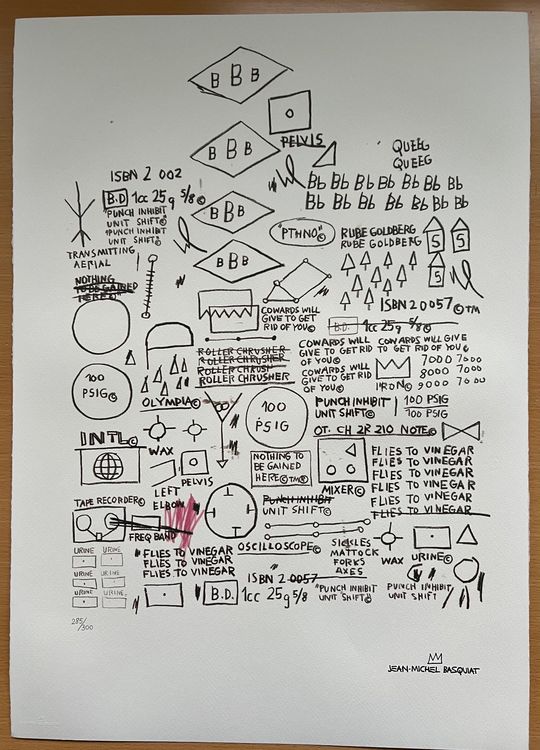 B B B
B B B
PELVIS
QUEEG
QUEEG
ISBN 2 002
B.D 1cc 25g 5/8©
"PUNCH INHIBIT
UNIT SHIFT©
"PUNCH INHIBIT
UNIT SHIFT©
TRANSMITTING
AERIAL
NOTHING
TO BE GAINED
HERE©
B B B
B B B
Bb Bb Bb Bb Bb Bb Bb
Bb Bb Bb Bb Bb Bb Bb
"PTHNO"©
RUBE GOLDBERG
RUBE GOLDBERG
S S
S
ISBN 2 0057 ©TM
COWARDS WILL
GIVE TO GET
RID OF YOU©
B.D. 1cc 25g 5/8©
ROLLER CHRUSHER
ROLLER CHRUSHER
ROLLER CHRUSH
ROLLER CHRUSHER
COWARDS WILL
GIVE TO GET RID
OF YOU©
COWARDS WILL
GIVE TO GET RID
OF YOU©
COWARDS WILL GIVE
TO GET RID OF YOU©
IRON©
7000 7000
8000 7000
9000 7000
100
PSIG©
OLYMPIA©
100
PSIG
PUNCH INHIBIT
UNIT SHIFT©
100 PSIG
100 PSIG
OT. CH 2R 210 NOTE©
INTL©
WAX
PELVIS
LEFT
ELBOW
NOTHING TO
BE GAINED
HERE©TM©
MIXER©
FLIES TO VINEGAR
FLIES TO VINEGAR
FLIES TO VINEGAR
FLIES TO VINEGAR
FLIES TO VINEGAR
FLIES TO VINEGAR
TAPE RECORDER©
FREQ BAND
PUNCH INHIBIT
UNIT SHIFT©
OSCILLOSCOPE©
SICKLES
MATTOCK
FORKS
AXES
WAX
URINE©
URINE URINE
URINE URINE
URINE URINE
URINE URINE
FLIES TO VINEGAR
FLIES TO VINEGAR
FLIES TO VINEGAR
ISBN 2 0057
B.D. 1cc 25g 5/8©
"PUNCH INHIBIT
UNIT SHIFT©
PUNCH INHIBIT
UNIT SHIFT
285/300
JEAN-MICHEL BASQUIAT